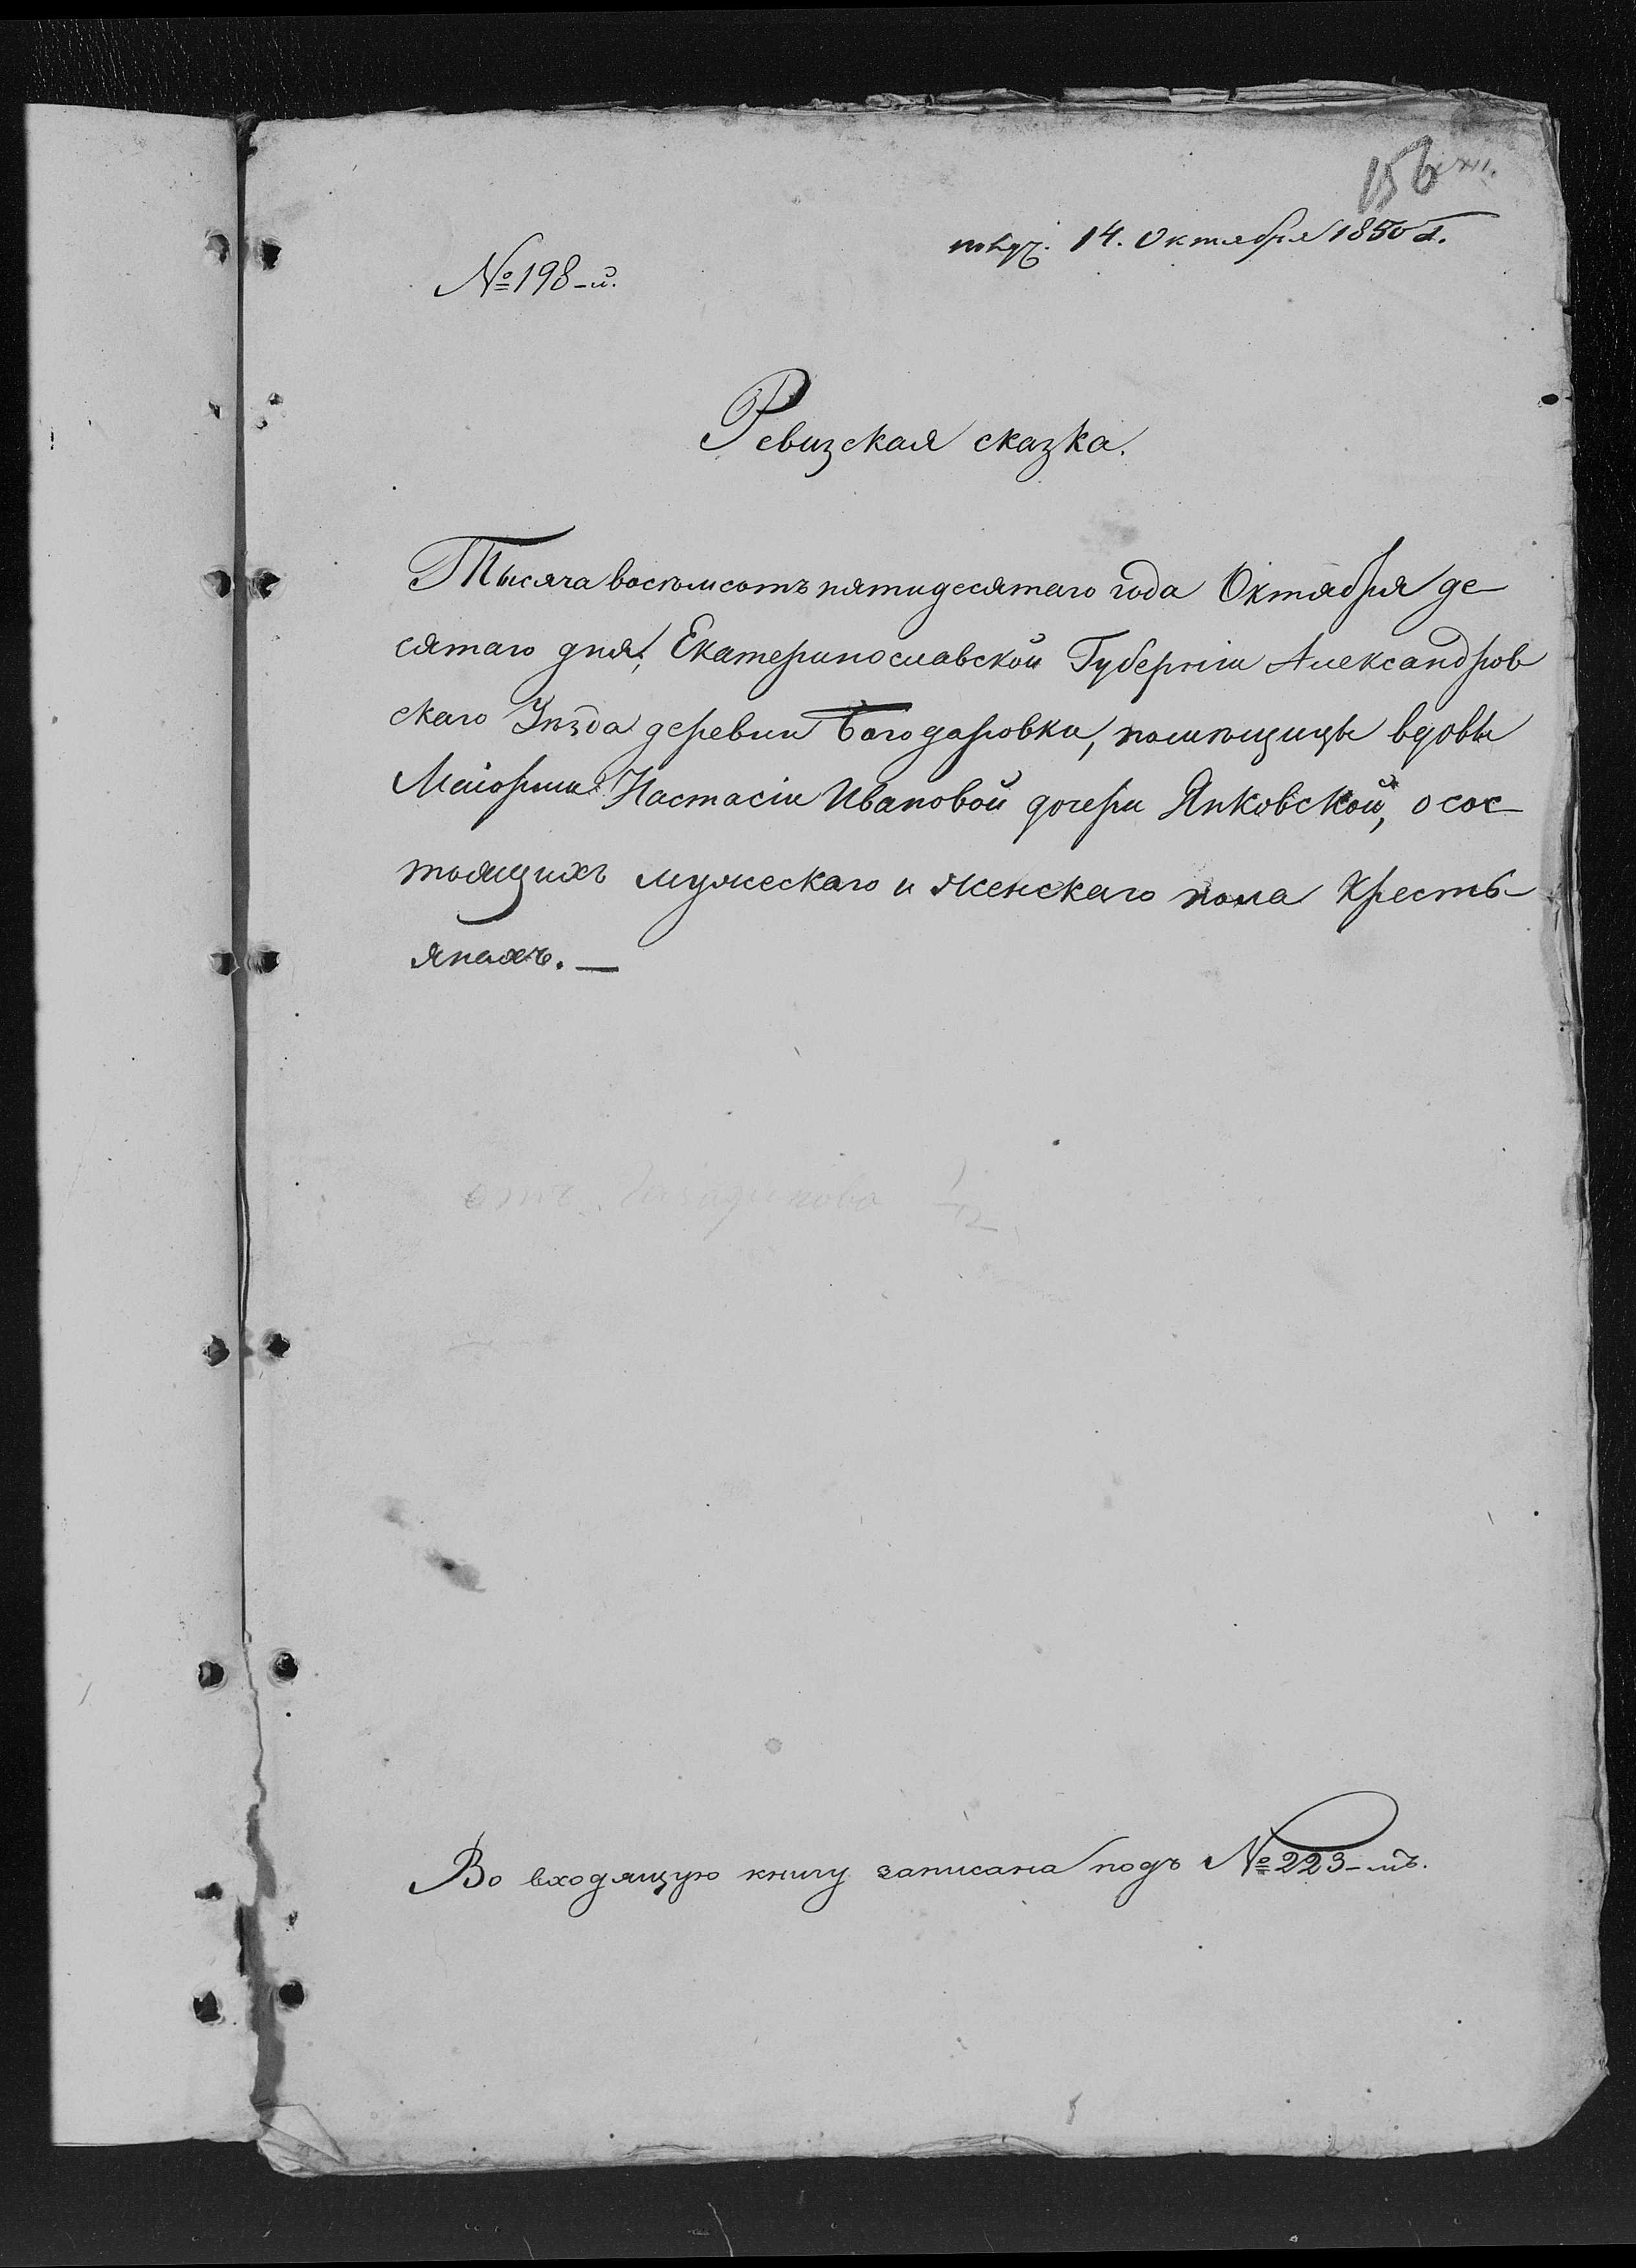 156
14. Октября 1850 г.
№ 198-й.
Ревизская сказка.
Тысяча восемьсотъ пятидесятаго года Октября де-
сятаго дня, Екатеринославской Губерніи Александров
скаго Уѣзда деревни Богодаровки, помѣщицы вдовы
Маіорши Настасіи Ивановой дочери Янковской, о сос-
тоящихъ мужескаго и женскаго пола Кресть-
янахъ. —
Во входящую книгу записана подъ № 223-мъ.